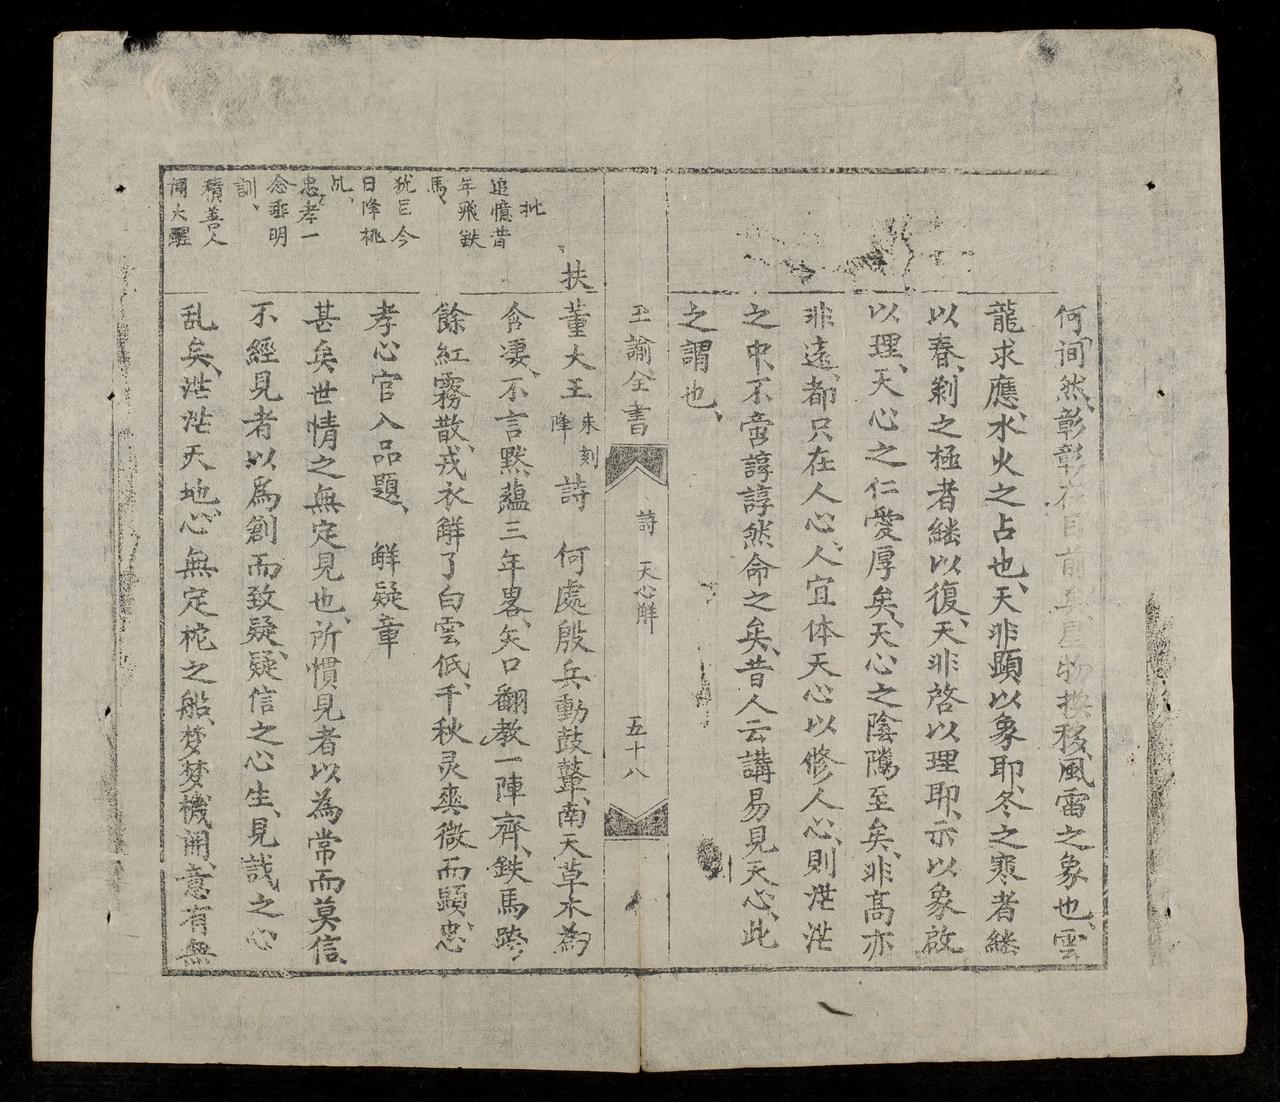 何、詞然、彰彰在目前矣、星物換移、風雷之象也、雲
龍求應、水火之占也、天非顕以象耶、冬之寒者継
以春、剥之極者継以復、天非啓以理耶、示以象啟
以理、天心之仁愛厚矣、天心之陰隲至矣、非髙亦
非遠、都只在人心、人宜体天心以修人心、則茫茫
之中、不啻諄諄然命之矣、昔人云講易見天心、此
之謂也、
玉諭全書 詩 天心觧 五十八
扶董大王 来刻降 詩 何處殷兵動鼓鼙、南天草木為
含凄、不言黙蘊三年畧、矢口翻教一陣齊、鉄馬跨
餘紅霧散、戎衣觧了白雲低、千秋灵爽微而顕、忠
孝心官入品題、 觧疑章
甚矣世情之無定見也、所慣見者以為常而莫信、
不經見者以爲創而致疑、疑信之心生、見哉之心
乱矣、茫茫天地、心無定柁之船、梦梦機開、意有無
批
追憶昔
年飛鉄
馬、
犹巨今
日降桃
乩、
忠孝一
念垂明
訓、
積善人
聞大醒